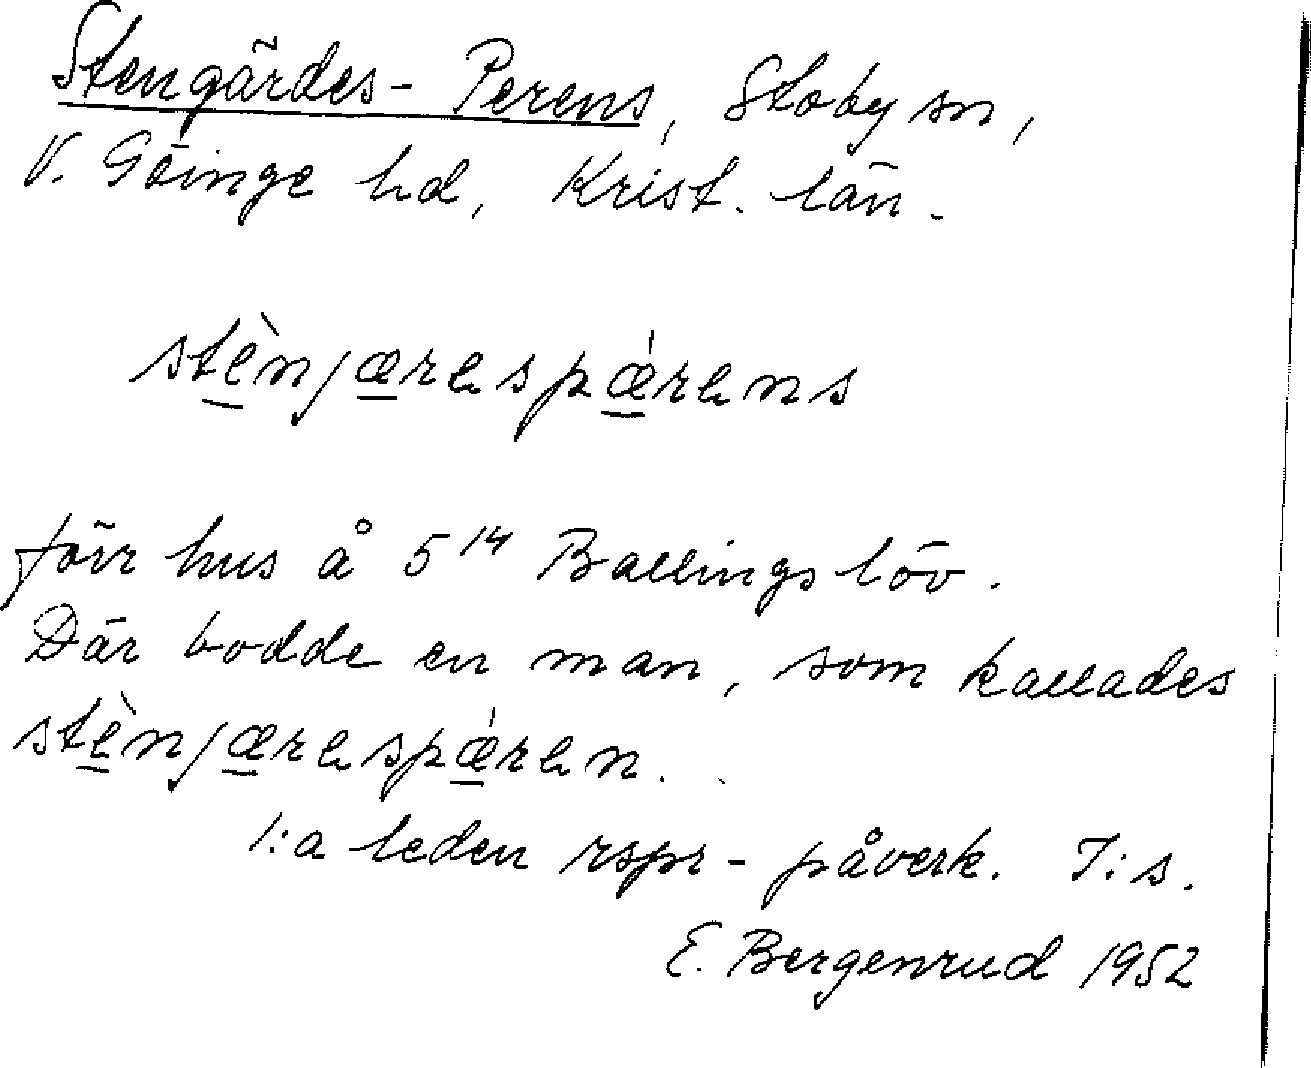 Stengärdes-Perens, Stoby sn,
V. Göinge hd, Krist. län.
stè̠nja̠eres pǽ̠rens
förr hus å 5¹⁴ Ballingslöv.
Där bodde en man, som kallades
stè̠njæ̠respǽ̠ren.
1:a leden rspr-påverk. I:s.
E. Bergenrud 1952